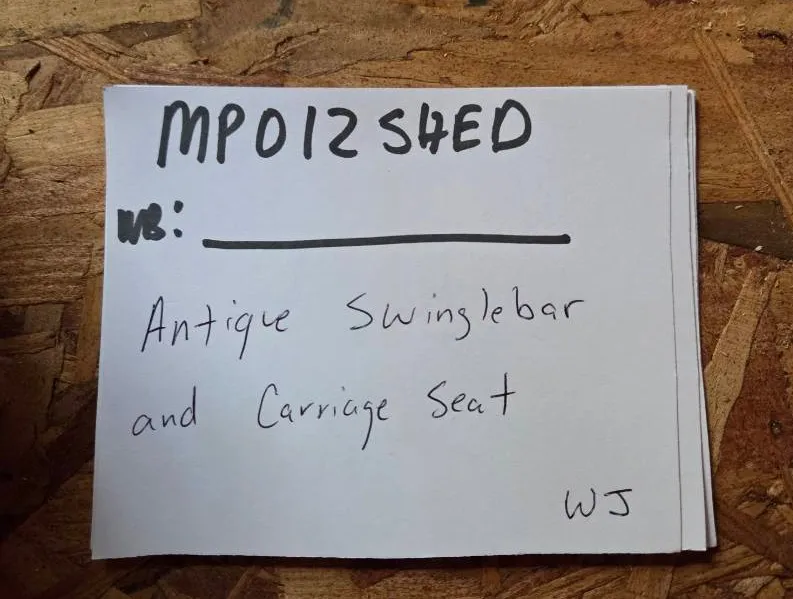 MP012 SHED
WB:
Antique Swinglebar
and Carriage Seat
WJ